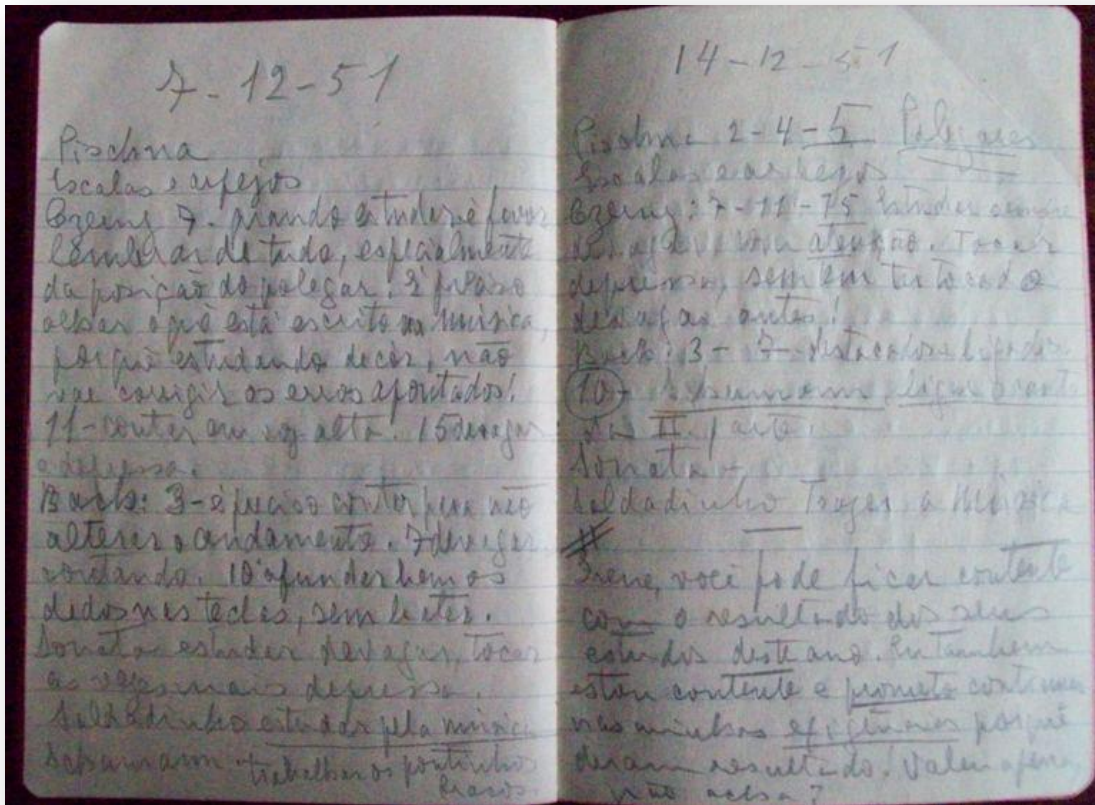 7-12-51
Pischna
Escalas e arpejos
Czerny 7. quando estudar é favor
lembrar de tudo, especialmente
da posição do polegar! É preciso
olhar o que está escrito na música,
porquê estudando decór, não
vae corrigir os erros apontados!
11-contar em voz alta. 15 devagar
e depressa.
Bach: 3-é preciso contar para não
alterar o andamento. 7 devagar,
contando. 10 afundar bem os
dedos nas teclas, sem bater.
Sonata estudar devagar, tocar
as vezes mais depressa.
Soldadinho estudar pela música
Schumann - trabalhar os pontinhos
fracos.
14-12-51
Pischna 2-4-5 Polegares
Escalas e arpejos
Czerny: 7-11-15 Estudar sempre
devagar com atenção. Tocar
depressa, sem ter tocado
devagar antes!
Bach: 3-7-destacados e ligados
10- Schumann ligar o canto
da II parte
Sonata -
Soldadinho Trazer a Música
Irene, você pode ficar contente
com o resultado dos seus
estudos deste ano. Eu tambem
estou contente e prometo continuar
nas minhas exigências porquê
deram resultado! Valeu a pena,
não acha?